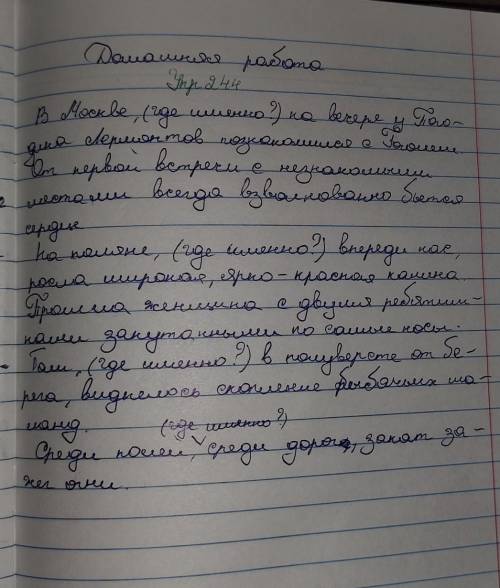 Домашняя работа
Упр 244
В Москве, (где именно?) на вечере у Пого-
дина Лермонтов познакомился с Гоголем
От первой встречи с незнакомыми
местами всегда взволнованно бьется
сердце
На поляне, (где именно?) впереди нас,
росла широкая, ярко-красная калина.
Прошла женщина с двумя ребятиш-
ками закутанными по самые носы.
Там, (где именно?) в полуверсте от бе-
рега, виднелось скопление рыбачьих ша-
ланд.
(где именно?)
Среди полей, среди дорог, закат за-
жег огни.